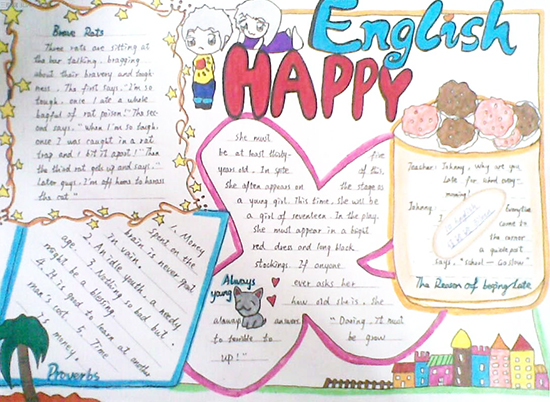 English
HAPPY
Brave Rats
Three rats are sitting at
the bar talking, bragging
about their bravery and tough-
ness. The first says, "I'm so
tough, once I ate a whole
hapful of rat poison!" The sec-
ond says, "When I'm so tough,
once I was caught in a rat
trap and I bit it apart!" Then
the third rat gets up and says,"
Later guys, I'm off home to harass
the cat."
she must
be at least thirty-five
years old. In spite of this,
she often appears on the stage as
a young girl. This time, she will be
a girl of seventeen. In the play,
she must appear in a bright
red dress and long black
stockings. If anyone
ever asks her
how old she is, she
always answers
" Daring, It must
be terrible to grow
up!"
Always
yang
Teacher: Johnny, Why are you
late for school every
morning?
Johnny: Everytime
I come to
the corner
a guidepost
says, "School — Go slow"
The Reason of beping Late
1. Money
spent on the
brain is never spent
in vain.
2. An idle youth, a needy
age. 3. Nothing so bad but
might be a blessing.
4. It is good to learn at another
man's cost. 5. Time
is money.
Proverbs